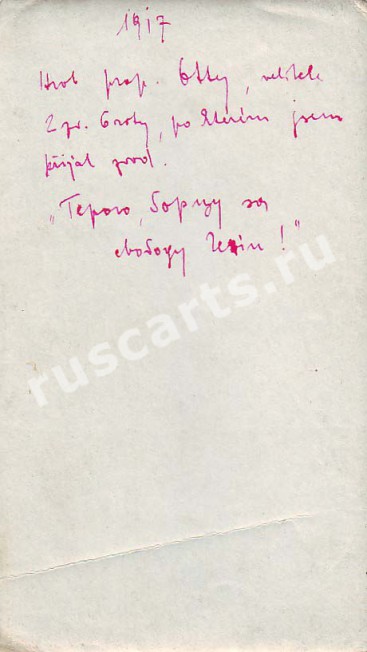 1917
Hrob prap. Otty, velitele
2 pr. 6 roty, po kterém jsem
přijal prod.
„Герою, борцу за
свободу Чехии!"
ruscarts.ru